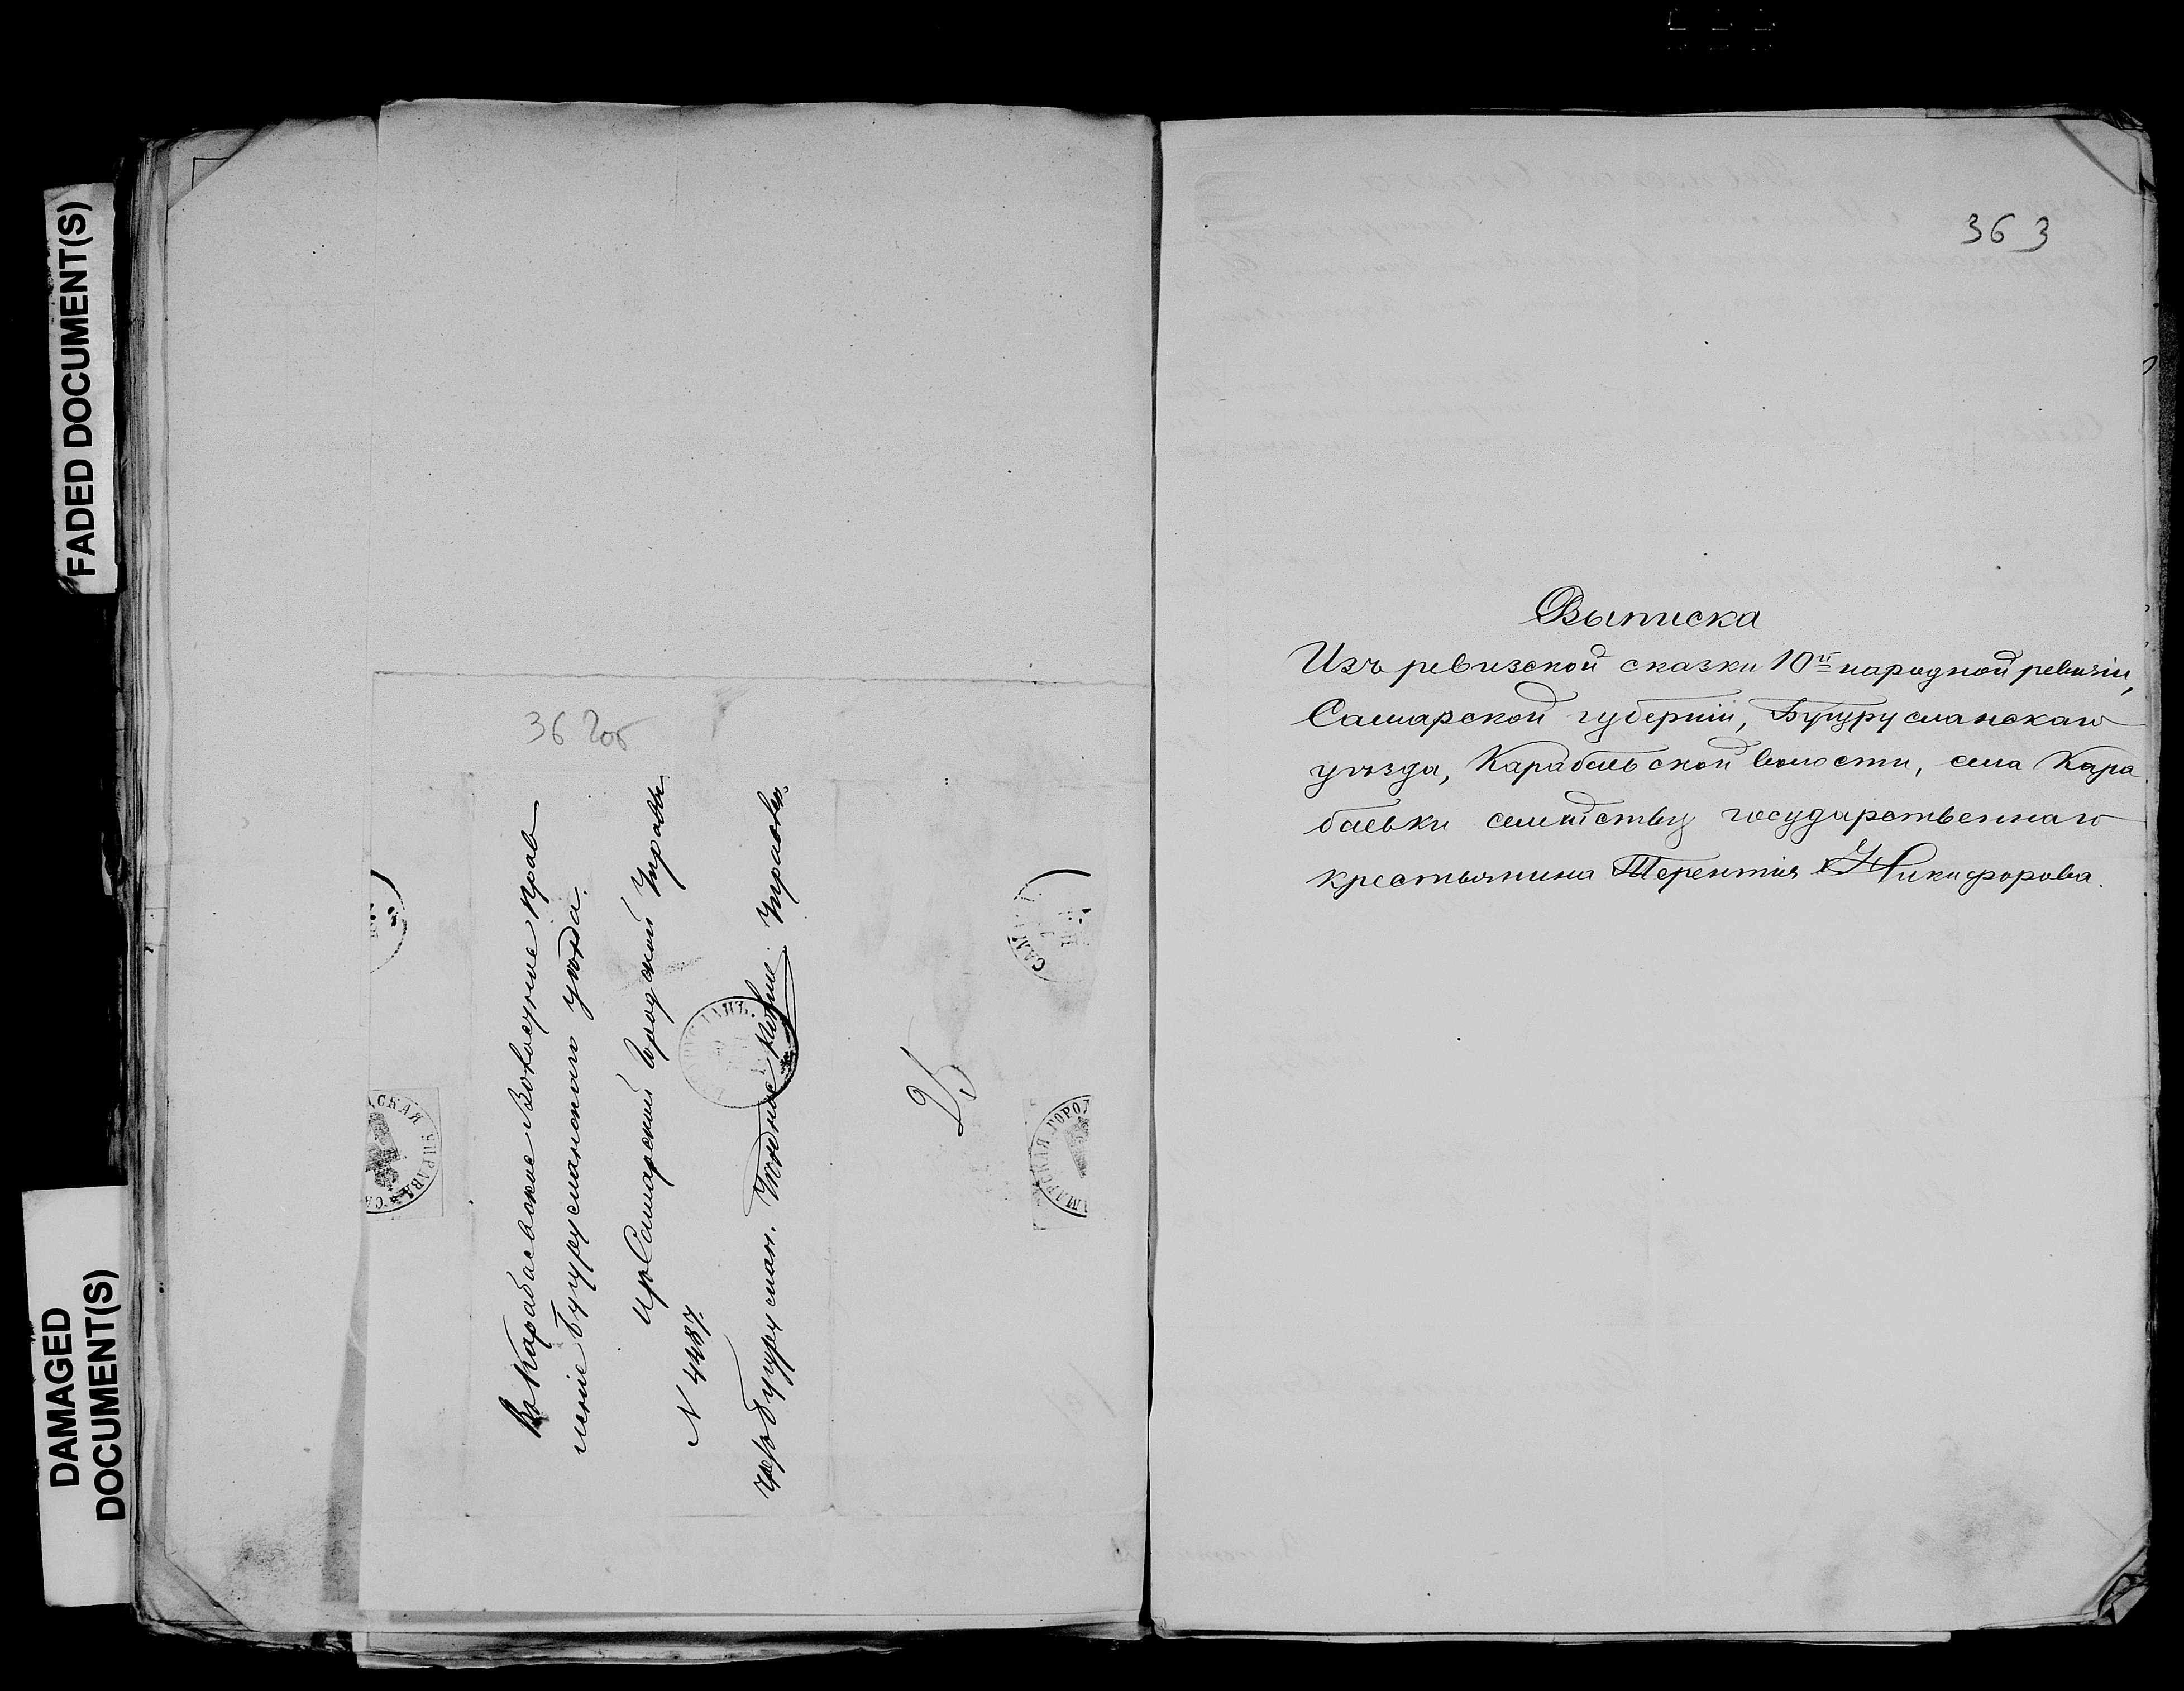 FADED DOCUMENT(S)
DAMAGED
DOCUMENT(S)
362об
Въ Карабаевское Волостное Прав
леніе Бугурусланскаго уѣзда.
Изъ Самарской Городской Управы
N 4487.
чрезъ Бугуруслан. Уѣздную Управу.
25
СКАЯ УПРАВА
МАРСКАЯ ГОРОД
363
Выписка
Изъ ревизской сказки 10й народной ревизіи,
Самарской губерніи, Бугурусланскаго
уѣзда, Карабаевской волости, села Кара
баевки семейству государственнаго
крестьянина Терентія Никифорова.